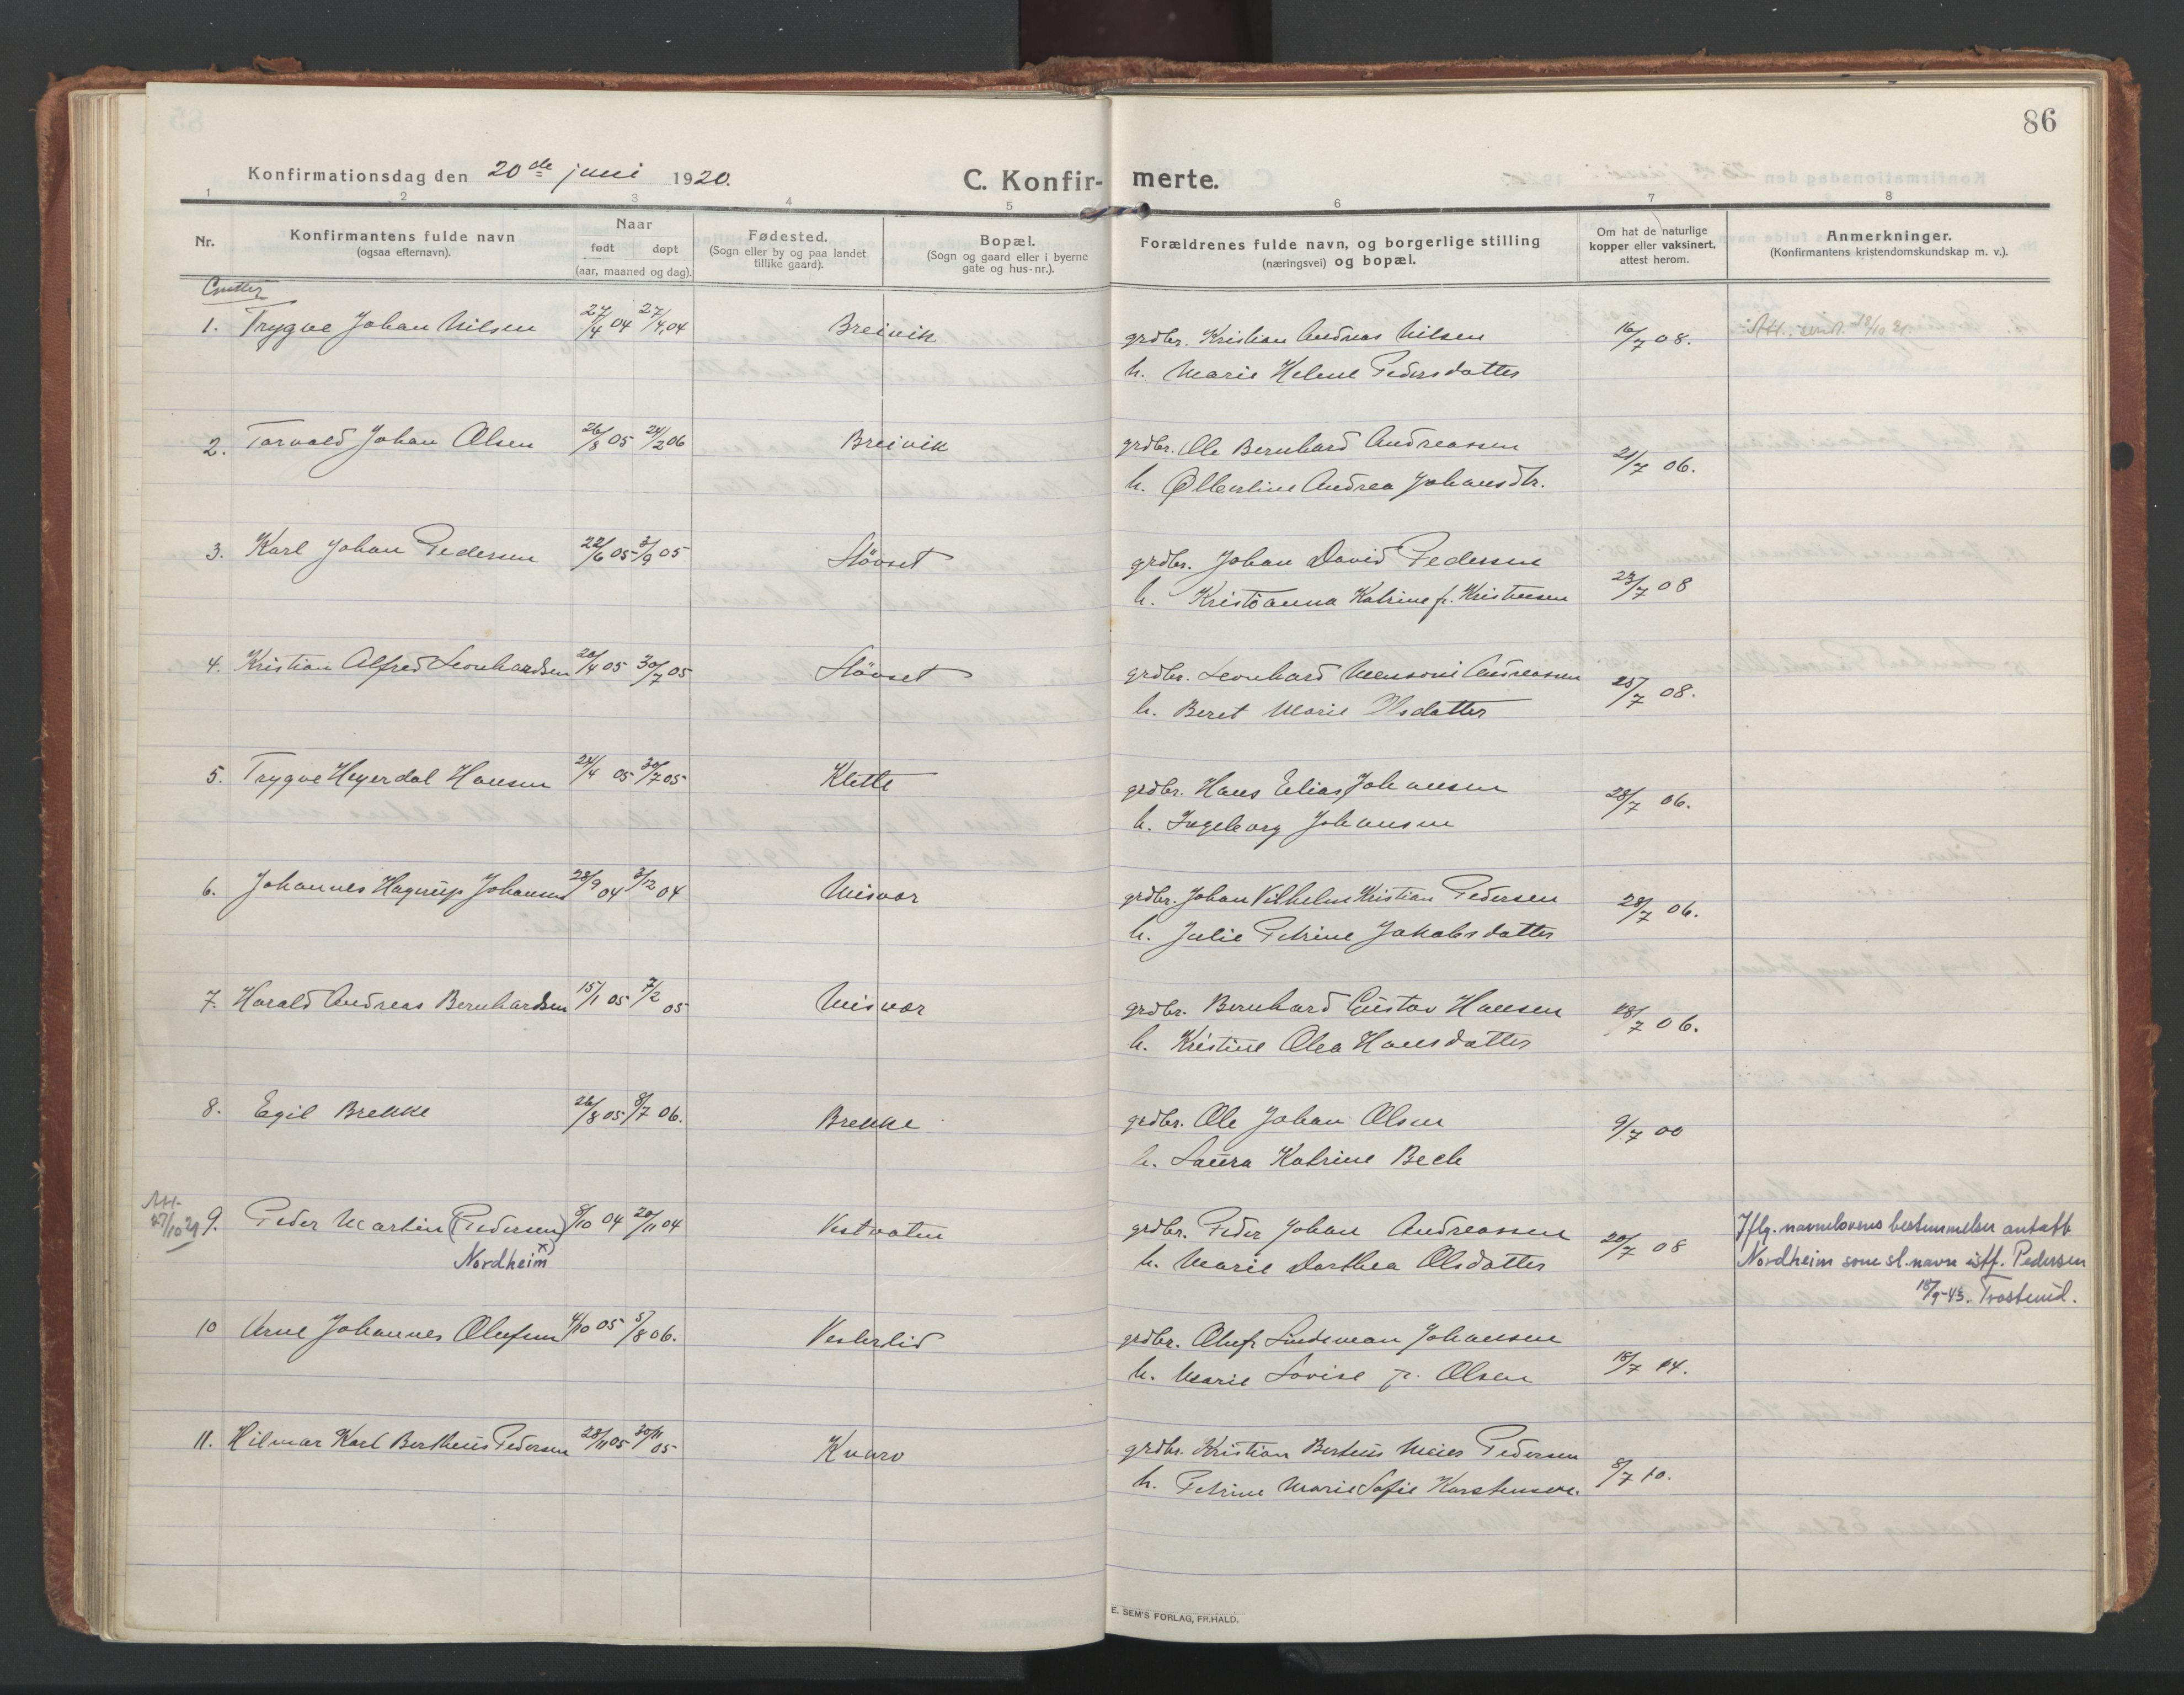 86
Konfirmationsdag den 20de juni 1920.
C. Konfir- merte.
1 2 3 4 5 6 7 8
Nr.
Konfirmantens fulde navn
(ogsaa efternavn).
Naar
født døpt
(aar, maaned og dag).
Fødested.
(Sogn eller by og paa landet
tillike gaard).
Bopæl.
(Sogn og gaard eller i byerne
gate og hus-nr.).
Forældrenes fulde navn, og borgerlige stilling
(næringsvei) og bopæl.
Om hat de naturlige
kopper eller vaksinert,
attest herom.
Anmerkninger.
(Konfirmantens kristendomskundskap m. v.).
Gutter
1. Trygve Johan Nilsen 27/4 04 27/4 04 Breivik grdbr. Kristian Andreas Nilsen 16/7 08. Att. sendt
h. Marie Helene Pedersdatter
2. Torvald Johan Olsen 26/8 05 24/2 06 Breivik grdbr. Ole Bernhard Andreassen 21/7 06.
h. Ollerline Andrea Johansdtr.
3. Karl Johan Pedersen 22/6 05 3/9 05 Støvset grdbr. Johan David Pedersen
h. Kristianna Katrine f. Kristensen 23/7 08
4. Kristian Alfred Leonhardsen 20/4 05 30/7 05 Støvset grdbr. Leonhard Mensoni Andreassen 25/7 08.
h. Beret Marie Olsdatter
5. Trygve Heyerdal Hansen 24/4 05 30/7 05 Klette grdbr. Hans Elias Johansen 28/7 06.
h. Ingeborg Johansen
6. Johannes Hagerup Johansen 28/9 04 3/12 04 Misvær grdbr. Johan Vilhelm Kristian Pedersen 28/7 06.
h. Julie Petrine Jakobsdatter
7. Harald Andreas Bernhardsen 15/1 05 7/2 05 Misvær grdbr. Bernhard Gustav Hansen 28/7 06.
h. Kristine Olea Hansdatter
8. Egil Brekke 26/8 05 8/7 06. Brekke grdbr. Ole Johan Olsen 9/7 00
h. Laura Katrine Bech
Att. 27/10 21 9. Peder Martin (Pedersen) 8/10 04 20/11 04 Vestvatn grdbr. Peder Johan Andreassen 20/7 08 Iflg. navnelovens bestemmelser antatt
Nordheim x) h. Marie Dorthea Olsdatter Nordheim som sl.navn istf. Pedersen
18/9-43. Trostenid.
10 Arne Johannes Olufsen 4/10 05 5/8 06. Vesterlid grdbr. Oluf Lindeman Johansen
h. Marie Lovise f. Olsen 18/7 14.
11. Hilmar Karl Bertheus Pedersen 28/11 05 30/11 05 Kvarv grdbr. Kristian Berteus Meier Pedersen 8/7 10.
h. Petrine Marie Sofie Karstensen.
E. SEM'S FORLAG, FR.HALD.